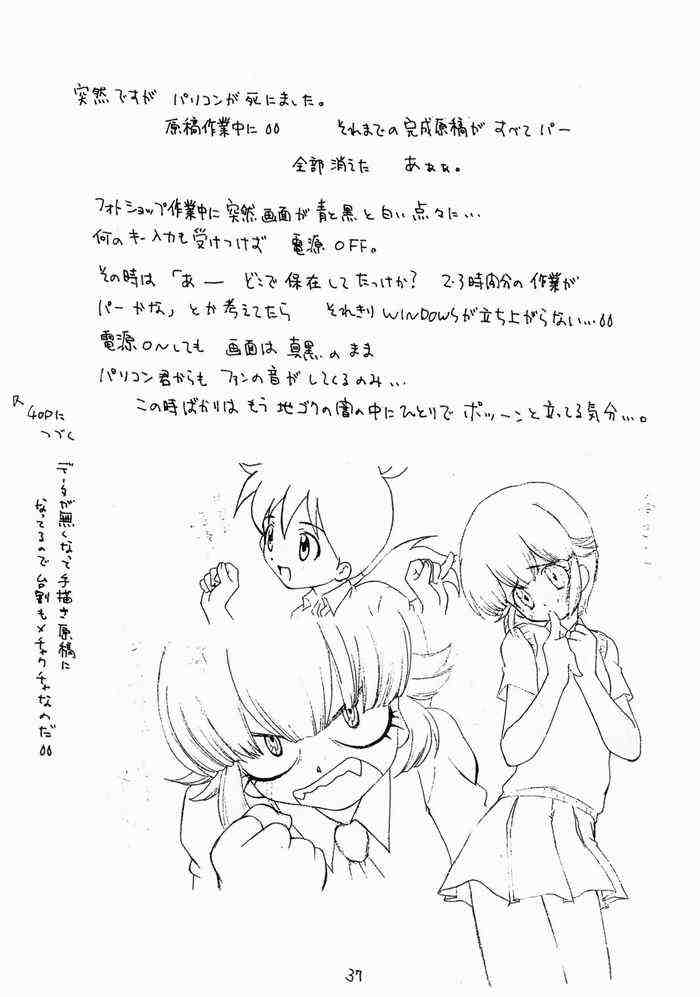 突然ですが パソコンが死にました。
原稿作業中に００ それまでの完成原稿が すべて パー
全部消えた あぁぁ。
フォトショップ作業中に突然画面が青と黒と白い点々に…
何のキー入力も受けつけば 電源OFF。
その時は「あー どこで保存してたっけか? 2・3時間分の作業が
パーかな」とか考えてたら それきりWINDOWSが立ち上がらない…００
電源ONしても 画面は真黒のまま
パソコン君からも ファンの音がしてくるのみ…
この時ばかりは もう地ゴクの闇の中にひとりで ポッーンと立ってる気分…。
40Pに
つづく
データが無くなって手描き原稿に
なってるので台割もメチャクチャなのだ００
37